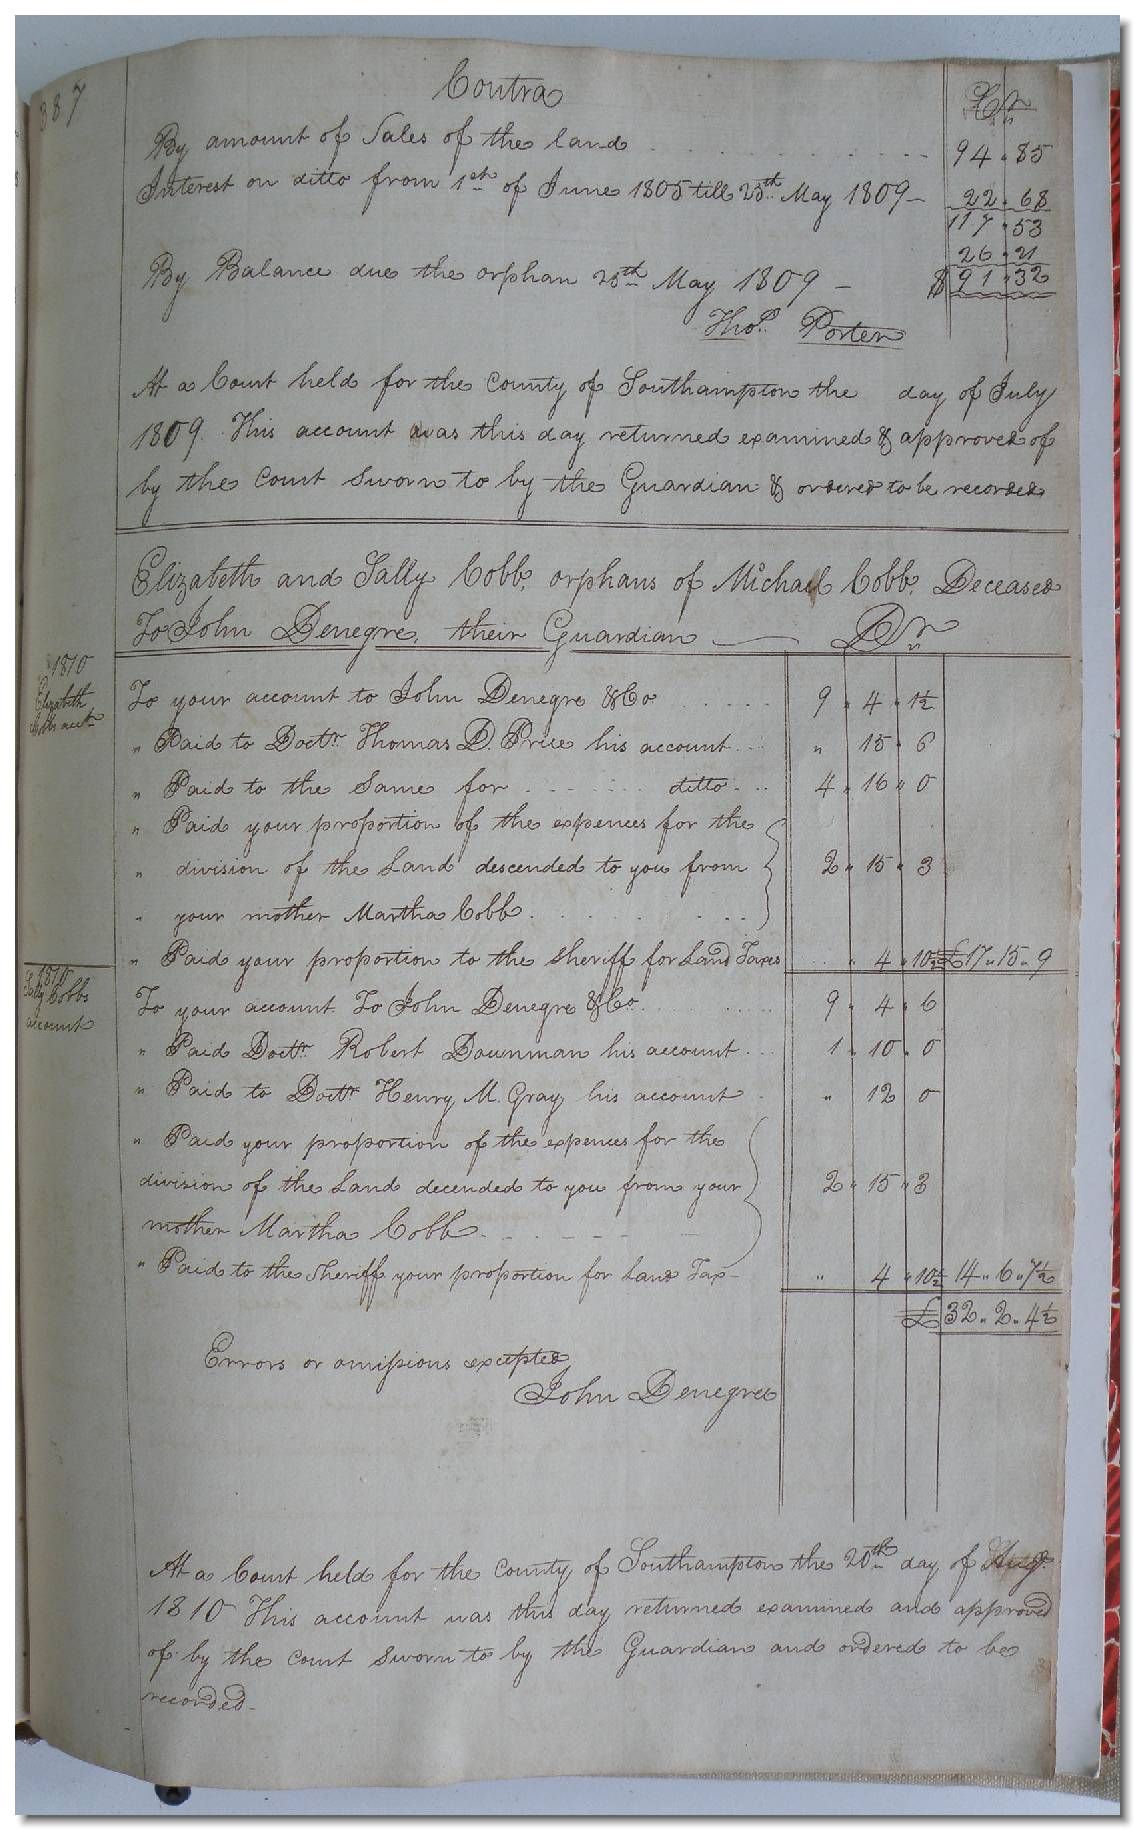 387
Contra Cr
By amount of Sales of the land 94 " 85
Interest on ditto from 1st of June 1805 till 25th May 1809 22 " 68
117 " 53
26 " 21
By Balance due the orphan 25th May 1809 $ 91 " 32
Thos. Porter
At a Court held for the county of Southampton the day of July
1809. This account was this day returned examined & approved of
by the Court sworn to by the Guardian & ordered to be recorded
Elizabeth and Sally Cobb, orphans of Michael Cobb, Deceased
To John Denegre, their Guardian Dr
1810
Elizabeth
Cobb acct
To your account to John Denegre & Co 9 " 4 " 1½
" Paid to Doctr. Thomas D. Price his account " 15 " 6
" Paid to the same for ditto 4 " 16 " 0
" Paid your proportion of the expences for the
" division of the Land descended to you from 2 " 15 " 3
" your mother Martha Cobb
" Paid your proportion to the Sheriff for Land Taxes " 4 " 10½ £17 " 15 " 9
1810
Sally Cobbs
account
To your account To John Denegre & Co 9 " 4 " 6
" Paid Doctr. Robert Downman his account 1 " 10 " 0
" Paid to Doctr Henry M. Gray his account " 12 0
" Paid your proportion of the expences for the
division of the Land decended to you from your 2 " 15 " 3
mother Martha Cobb
" Paid to the Sheriff your proportion for Land Tax " 4 " 10½ 14 " 6 " 7½
£ 32 " 2 " 4½
Errors or omissions excepted
John Denegre
At a Court held for the county of Southampton the 20th day of Augt.
1810 This account was this day returned examined and approved
of by the court sworn to by the Guardian and ordered to be
recorded